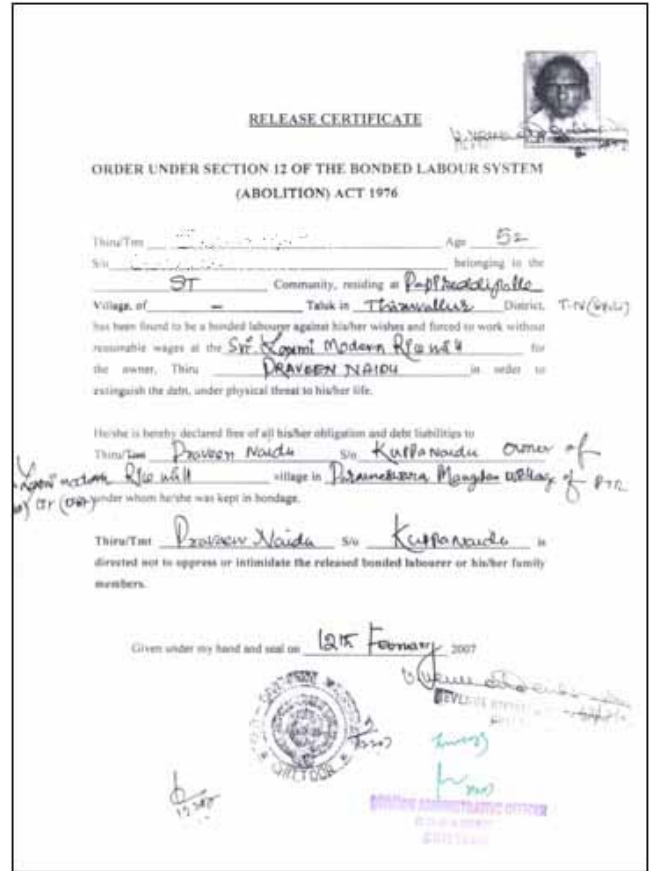 RELEASE CERTIFICATE
ORDER UNDER SECTION 12 OF THE BONDED LABOUR SYSTEM
(ABOLITION) ACT 1976
Thiru/Tmt Age 52
S/o belonging to the
ST Community, residing at
Village, of – Taluk in Thiruvallur District, T-N
has been found to be a bonded labourer against his/her wishes and forced to work without
reasonable wages at the Sri Laxmi Modern Rice mill for
the owner, Thiru PRAVEEN NAIDU in order to
extinguish the debt, under physical threat to his/her life.
He/she is hereby declared free of all his/her obligation and debt liabilities to
Thiru/Tmt Praveen Naidu S/o Kuppa Naidu owner of
Laxmi modern Rice mill village in village of PTR
under whom he/she was kept in bondage.
Thiru/Tmt Praveen Naidu S/o Kuppa Naidu is
directed not to oppress or intimidate the released bonded labourer or his/her family
members.
Given under my hand and seal on 12th February 2007
CHITTOOR
DIVISION ADMINISTRATIVE OFFICER
CHITTOOR